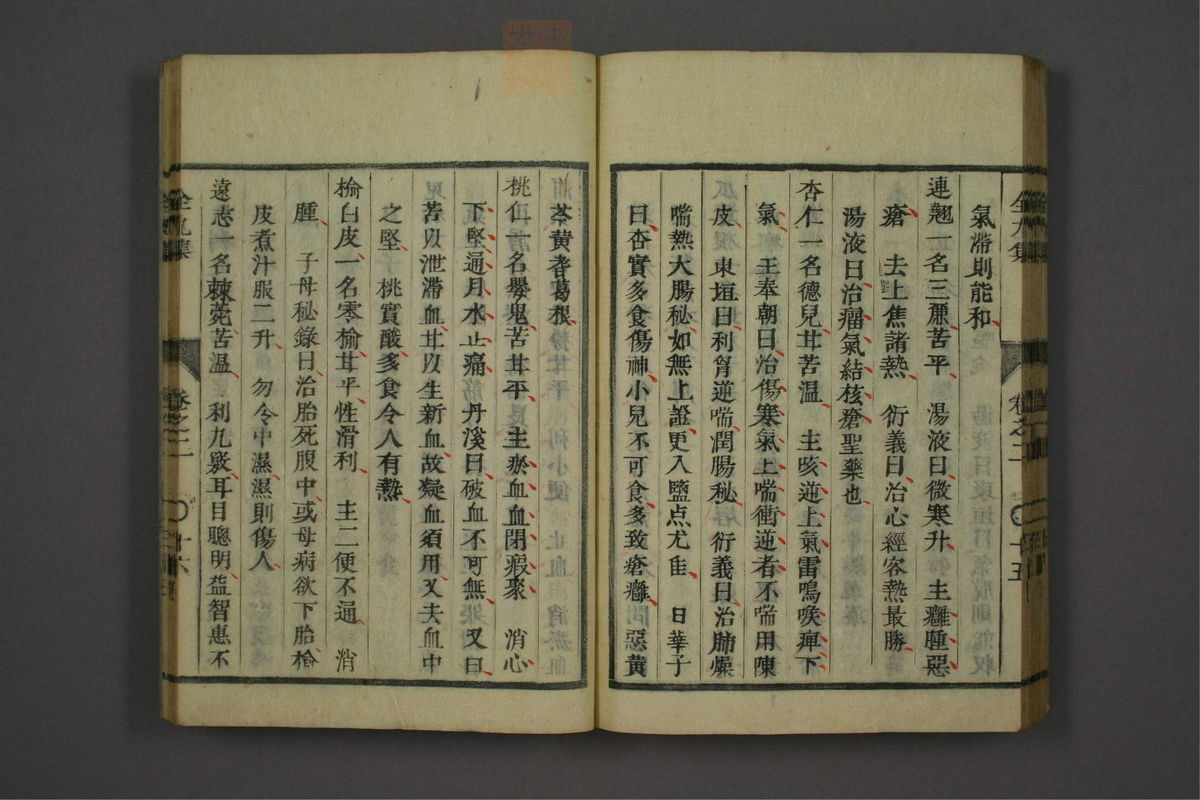 氣滯則能和
連翹一名三廉苦平 湯液曰微寒升 主癰腫惡
瘡 去上焦諸熱 衍義曰治心經客熱最勝
湯液曰治瘤氣結核瘡聖藥也
杏仁一名德兒甘苦温 主咳逆上氣雷鳴喉痺下
氣 王奉朝曰治傷寒氣上喘衝逆者不喘用陳
皮 東垣曰利胷逆喘潤腸秘 衍義曰治肺燥
喘熱大腸秘如無上證更入鹽点尤隹 日華子
曰杏實多食傷神小兒不可食多致瘡癰 惡黄
全九集 卷之二 〇十五
芩黄耆葛根
桃仁一名梟鬼苦甘平 主瘀血血閉瘕聚 消心
下堅通月水止痛 丹溪曰破血不可無 又曰
苦以泄滯血甘以生新血故凝血須用又去血中
之堅 桃實酸多食令人有熱
楡白皮一名零楡甘平性滑利 主二便不通 消
腫 子母秘錄曰治胎死腹中或母病欲下胎楡
皮煮汁服二升 勿令中濕濕則傷人
遠志一名棘菀苦温 利九竅耳目聰明益智惠不
全九集 卷之二 〇十六